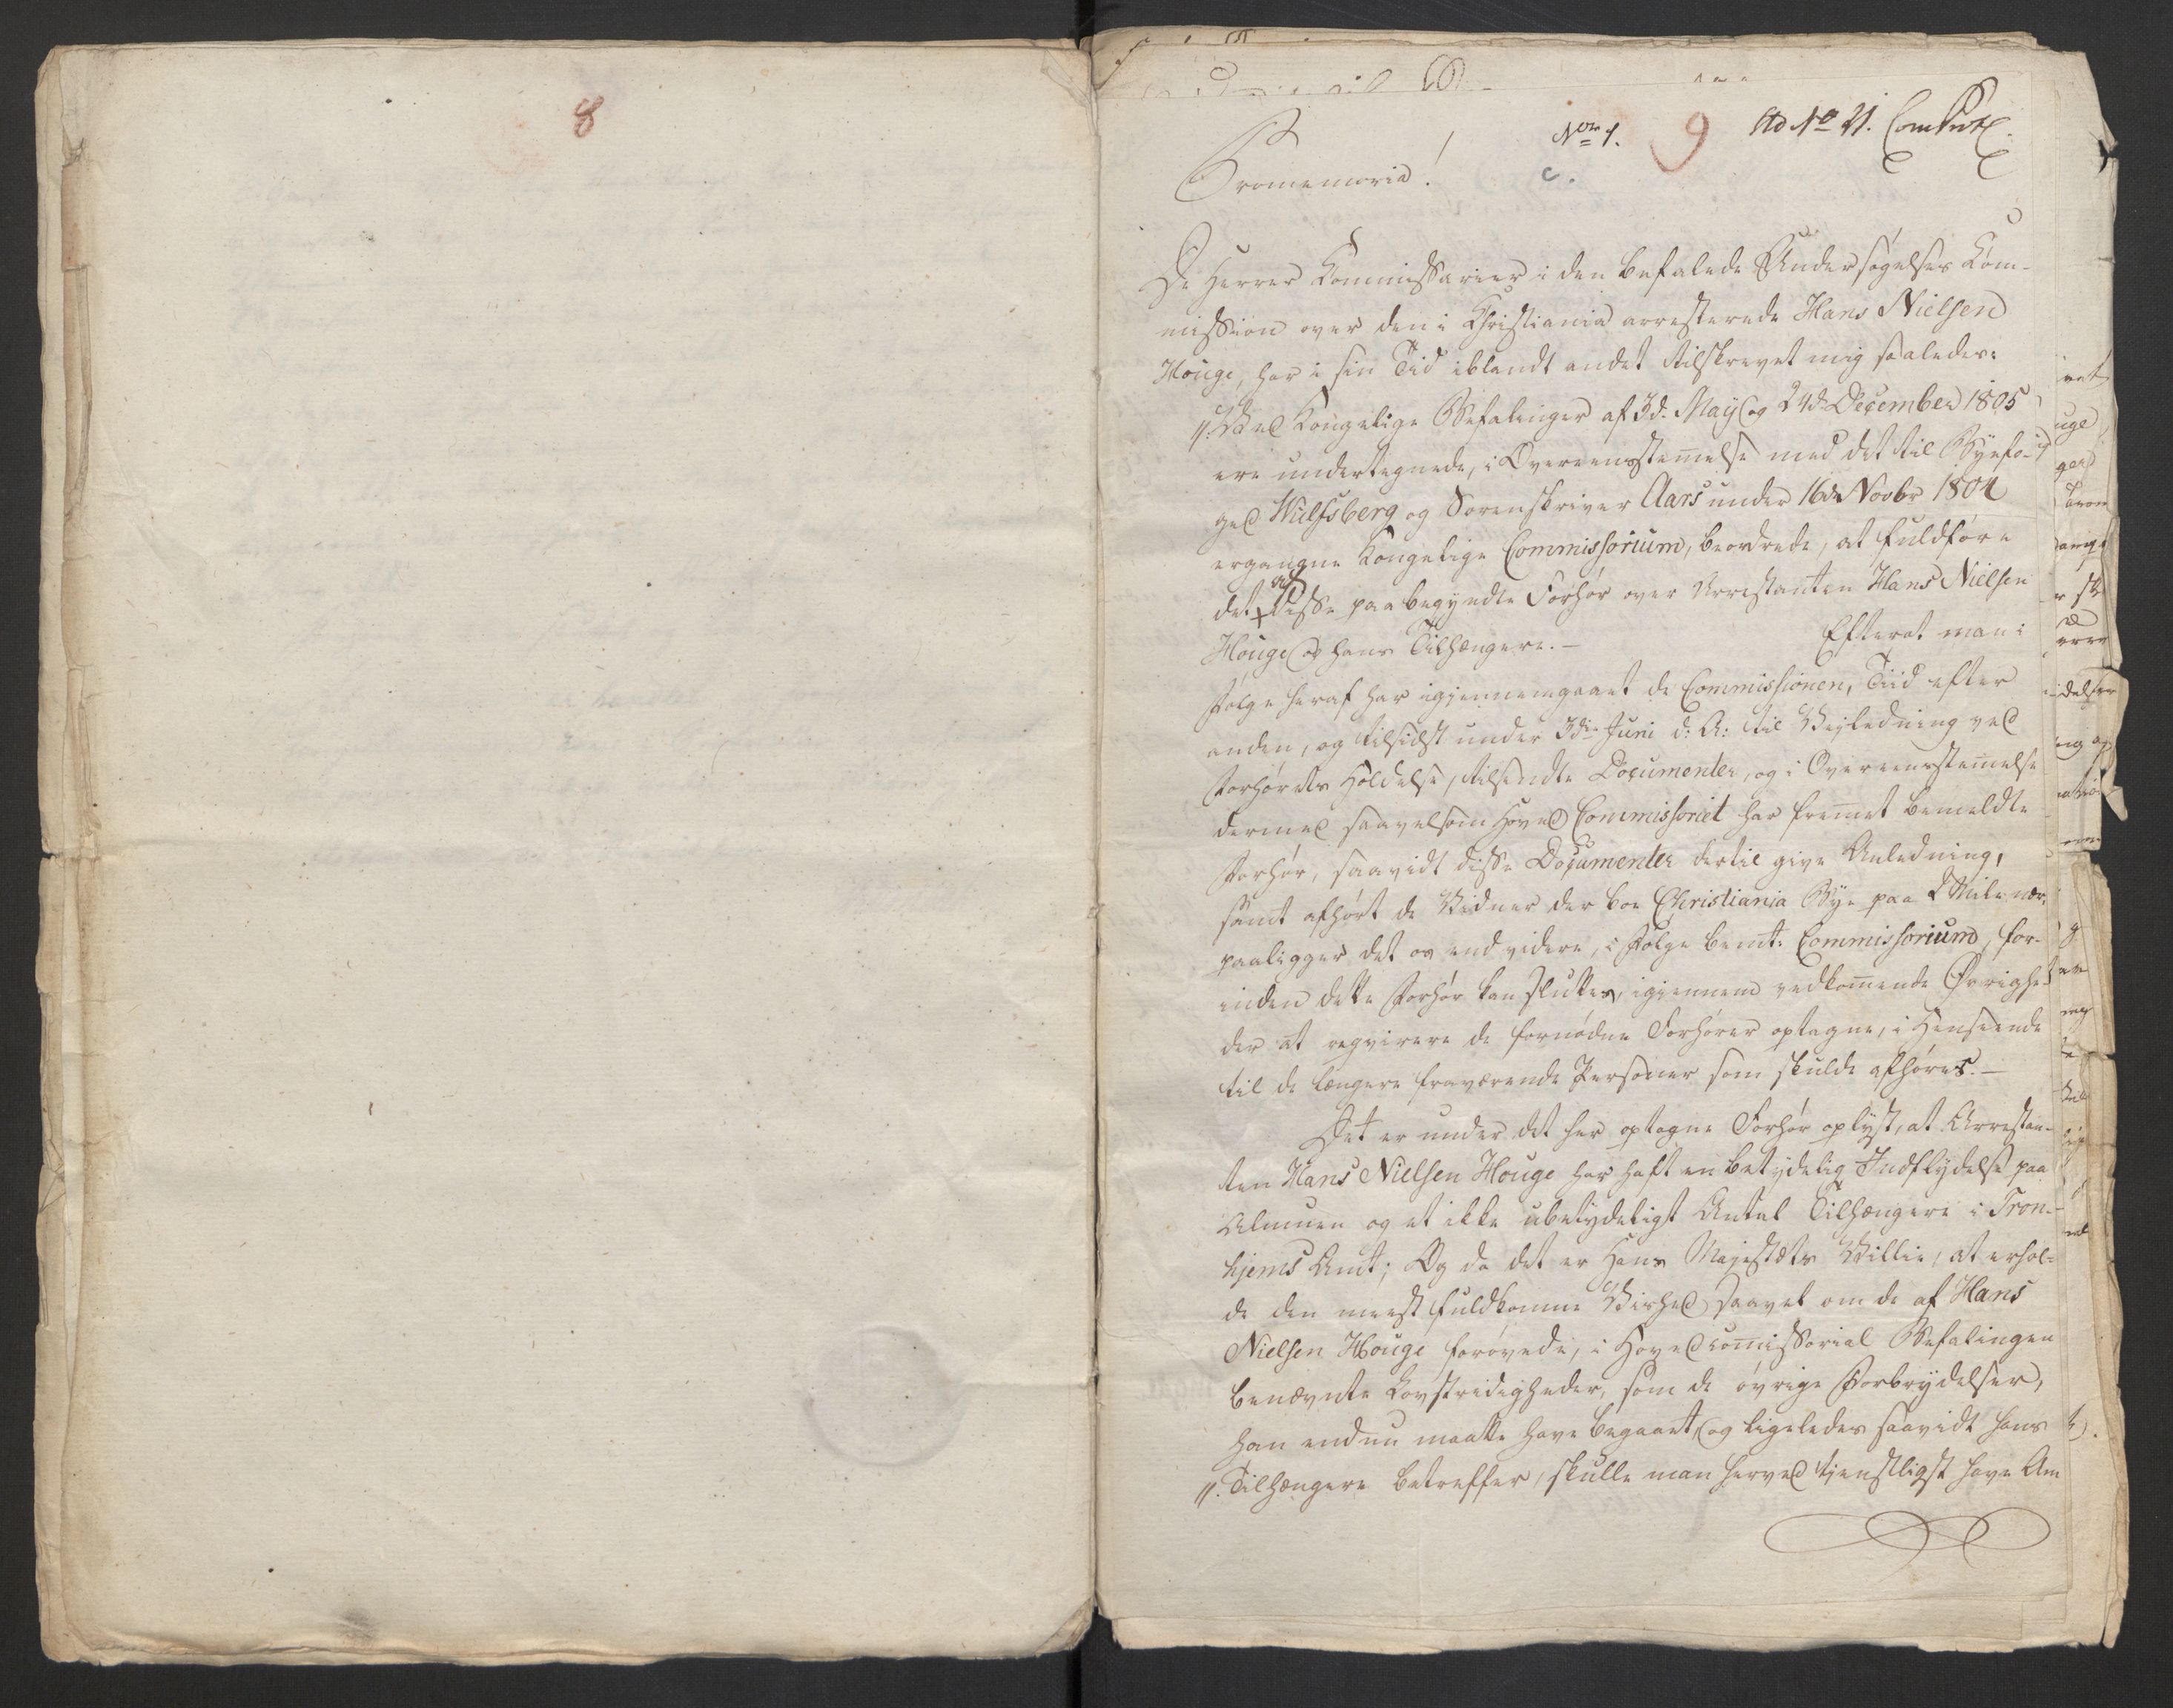 8
No 1.
9
Ad No 21. Com
Promemoria!
c.
De Herrer Kommissarier i den befalede Undersøgelses Kom-
mission over den i Christiania arresterede Hans Nielsen
Houge, har i sin Tid iblandt andet tilskrevet mig saaledes:
"Ved Kongelige Befalinger af 3d: May og 24d: December 1805
ere undertegnede, i Overeensstemelse med det til Byefo-
ged Wulfsberg og Sorenskriver Aars under 16de Novbr 1804
ergangne Kongelige Commissorium, beordrede, at fuldføre
det af disse paabegyndte Forhør over Arrestanten Hans Nielsen
Houge og hans Tilhængere. — Efterat man i
Følge heraf har igjennemgaaet de Commissionen, Tiid efter
anden, og tilsidst under 3die Juni d: A: til Veiledning ved
Forhørets Holdelse, tilsendte Documenter, og i Overeensstemelse
dermed saavelsom Hoved Commissoriet har fremet bemeldte
Forhør, saavidt disse Documenter dertil give Anledning,
samt afhørt de Vidner der boe Christiania Bye paa 2 Mile nær,
paaligger det os end videre, i Følge bemt: Commissorium, for-
inden dette Forhør kan sluttes, igiennem vedkomende Øvrighe-
der at reqvirere de fornødne Forhører optagne, i Henseende
til de længere fraværende Personer som skulde afhøres. —
Det er under det her optagne Forhør oplyst, at Arrestan-
ten Hans Nielsen Houge har haft en betydelig Indflydelse paa
Almuen og et ikke ubetydeligt Antal Tilhængere i Tron-
hjems Amt; Og da det er Hans Majestæts Villie, at erhol-
de den meest fuldkomne Vished saavel om de af Hans
Nielsen Houge forøvede, i Hovedcomissorial Befalingen
benævnte Lovstridigheder, som de øvrige Forbrydelser,
han endnu maatte have begaaet, og ligeledes saavidt hans
"Tilhængere betreffer, skulle man herved tjenstligst have Am